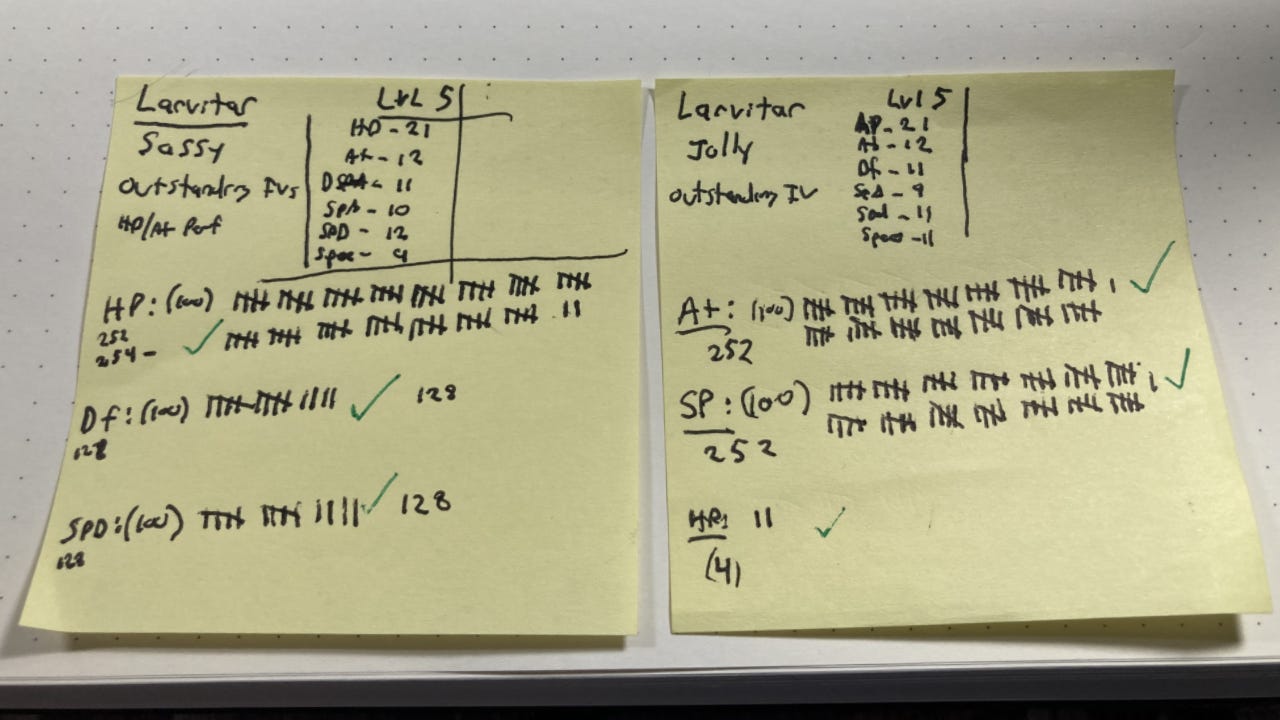 Larvitar
Sassy
Outstanding IVs
HP/At Perf
LvL 5
HP - 21
At - 12
Df - 11
SpA - 10
SpD - 12
Spee - 9
HP: (100)
252
254 -
Df: (100) 128
128
SPD: (100) 128
128
Larvitar
Jolly
Outstanding IV
Lvl 5
HP - 21
At - 12
Df - 11
SpA - 9
SpD - 11
Speed - 11
At: (100)
252
SP: (100)
252
HP: 11
(4)